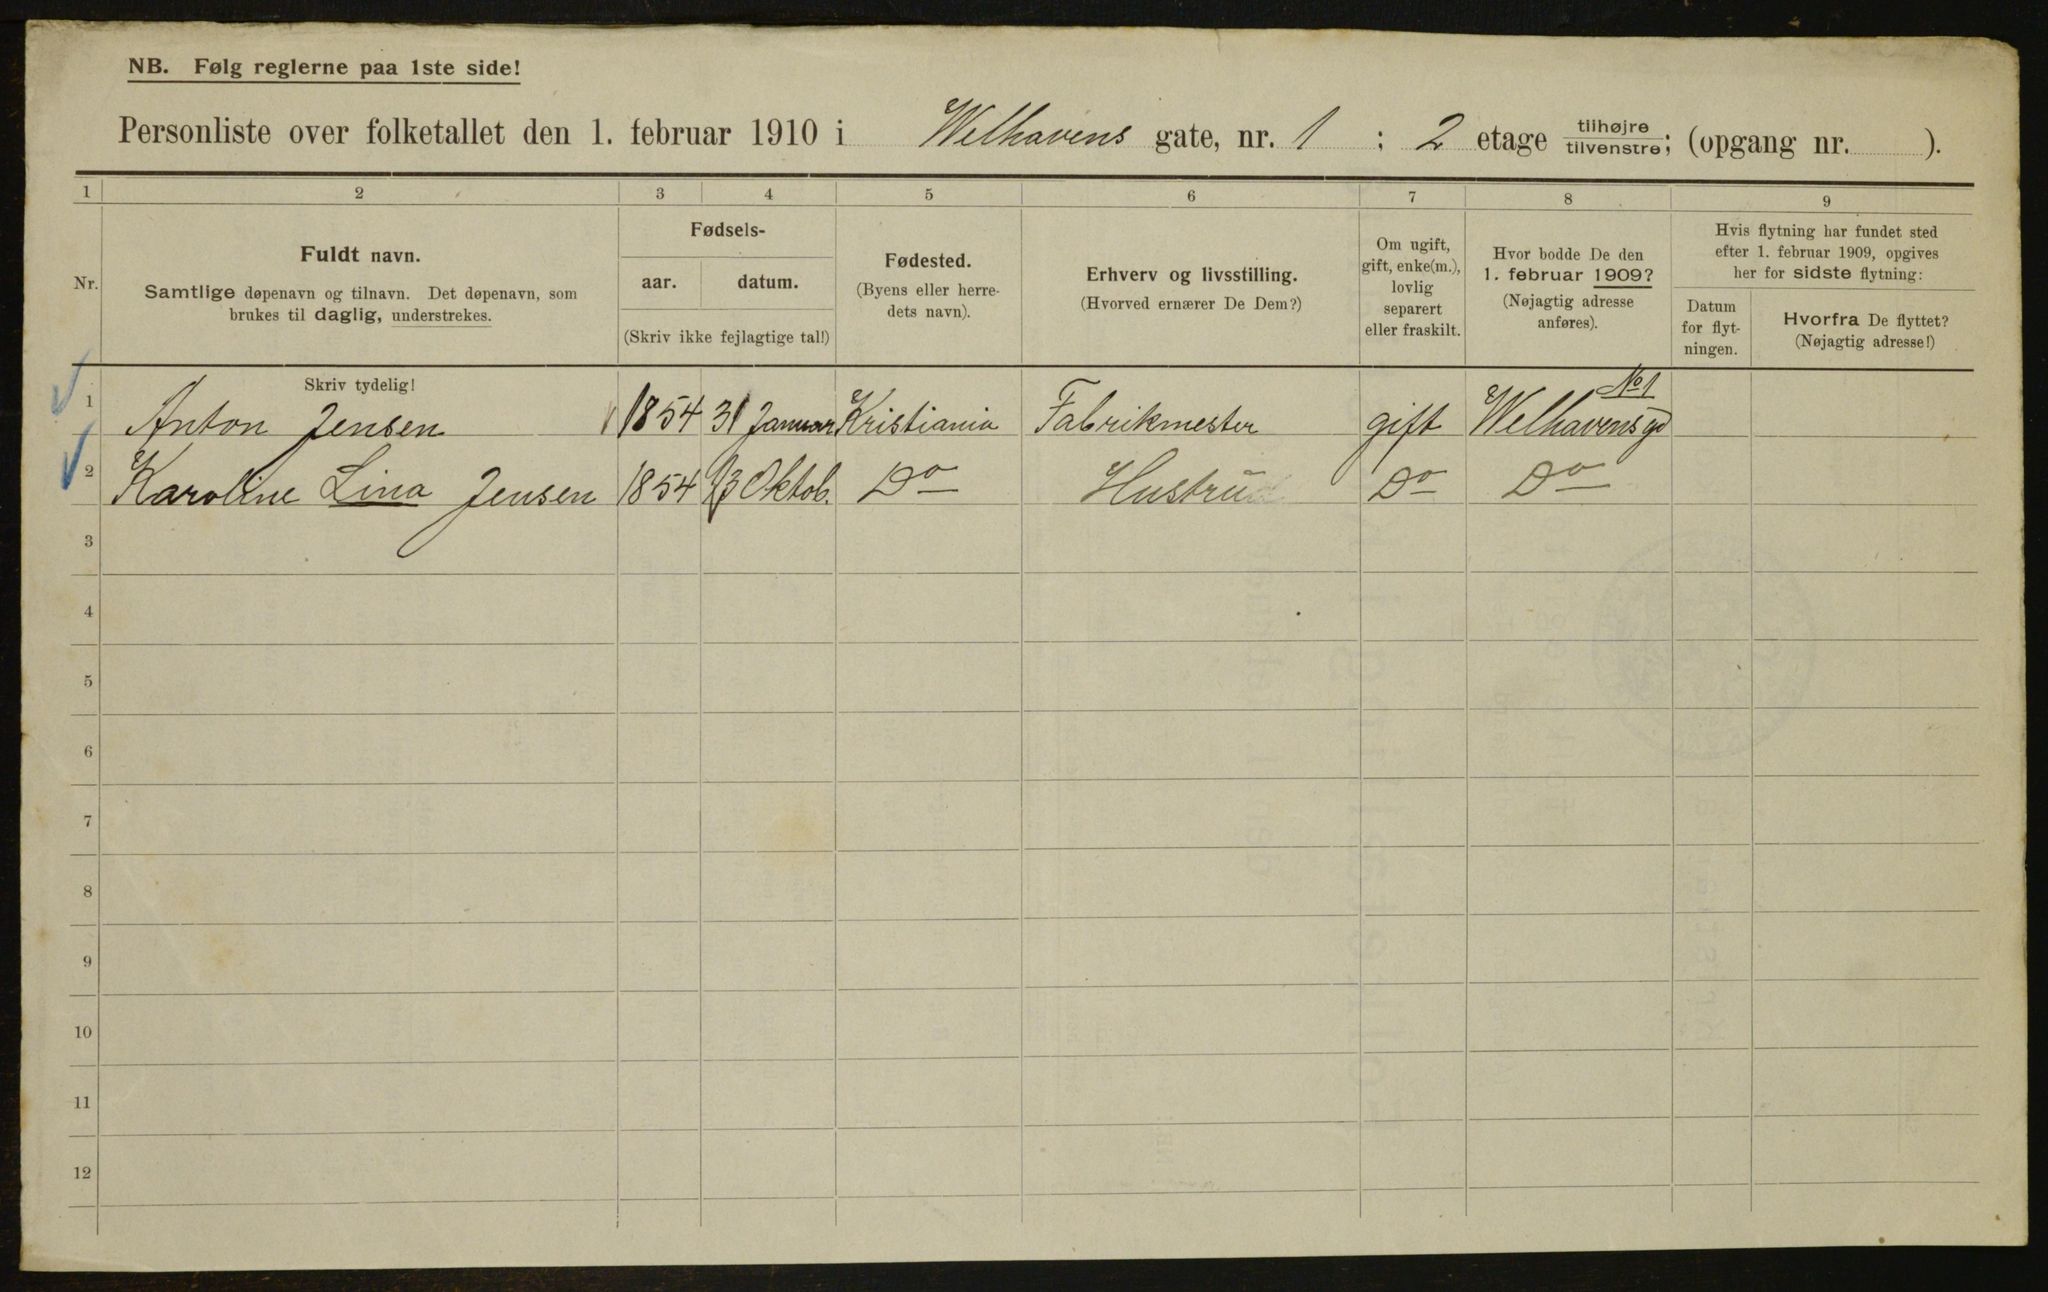 NB. Følg reglerne paa 1ste side!
Personliste over folketallet den 1. februar 1910 i Welhavens gate, nr. 1 ; 2 etage tilhøjre tilvenstre; (opgang nr. ).
1 2 3 4 5 6 7 8 9
Nr.
Fuldt navn.
Samtlige døpenavn og tilnavn. Det døpenavn, som
brukes til daglig, understrekes.
Fødsels-
aar. datum.
(Skriv ikke fejlagtige tal!)
Fødested.
(Byens eller herre-
dets navn).
Erhverv og livsstilling.
(Hvorved ernærer De Dem?)
Om ugift,
gift, enke(m.),
lovlig
separert
eller fraskilt.
Hvor bodde De den
1. februar 1909?
(Nøjagtig adresse
anføres).
Hvis flytning har fundet sted
efter 1. februar 1909, opgives
her for sidste flytning:
Datum
for flyt-
ningen.
Hvorfra De flyttet?
(Nøjagtig adresse!)
Skriv tydelig!
1 Anton Jensen 1854 31 Januar Kristiania Fabrikmester gift Welhavensgd No 1
2 Karoline Lina Jensen 1854 13 Oktob. Do Hustru Do Do
3
4
5
6
7
8
9
10
11
12